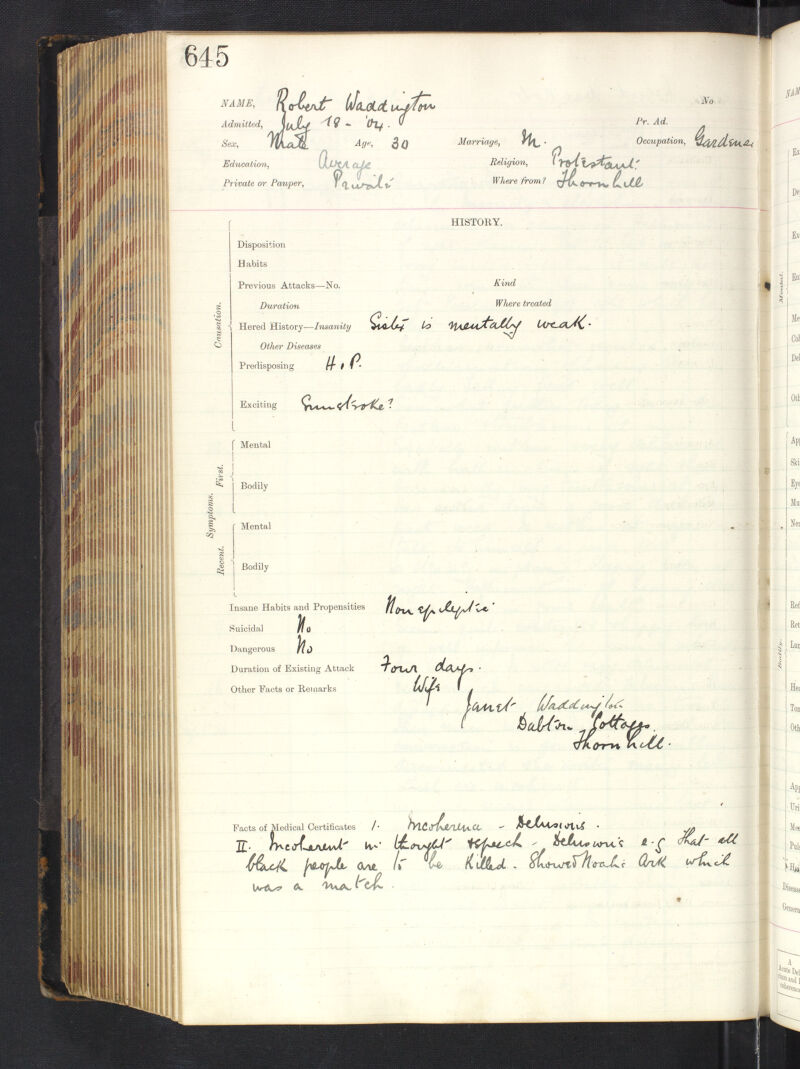 645
NAME, Robert Waddington No
Admitted, July 18 - '04. Pr. Ad.
Sex, Male Age, 30 Marriage, M. Occupation, Gardener
Education, Average Religion, Protestant.
Private or Pauper, Private Where from? Thornhill
HISTORY.
Causation.
Disposition
Habits
Previous Attacks—No. Kind
Duration Where treated
Hered History—Insanity Sister is mentally weak.
Other Diseases
Predisposing H.P.
Exciting Sunstroke?
Symptoms.
First.
Mental
Bodily
Recent.
Mental
Bodily
Insane Habits and Propensities Non epileptic.
Suicidal No
Dangerous No
Duration of Existing Attack Four days.
Other Facts or Remarks Wife
Janet Waddington
Dabton Cottages.
Thornhill.
Facts of Medical Certificates 1. Incoherence - Delusions.
II. Incoherent in thought & speech - Delusions e.g that all
black people are to be killed. Showed Noah's Ark which
was a match.